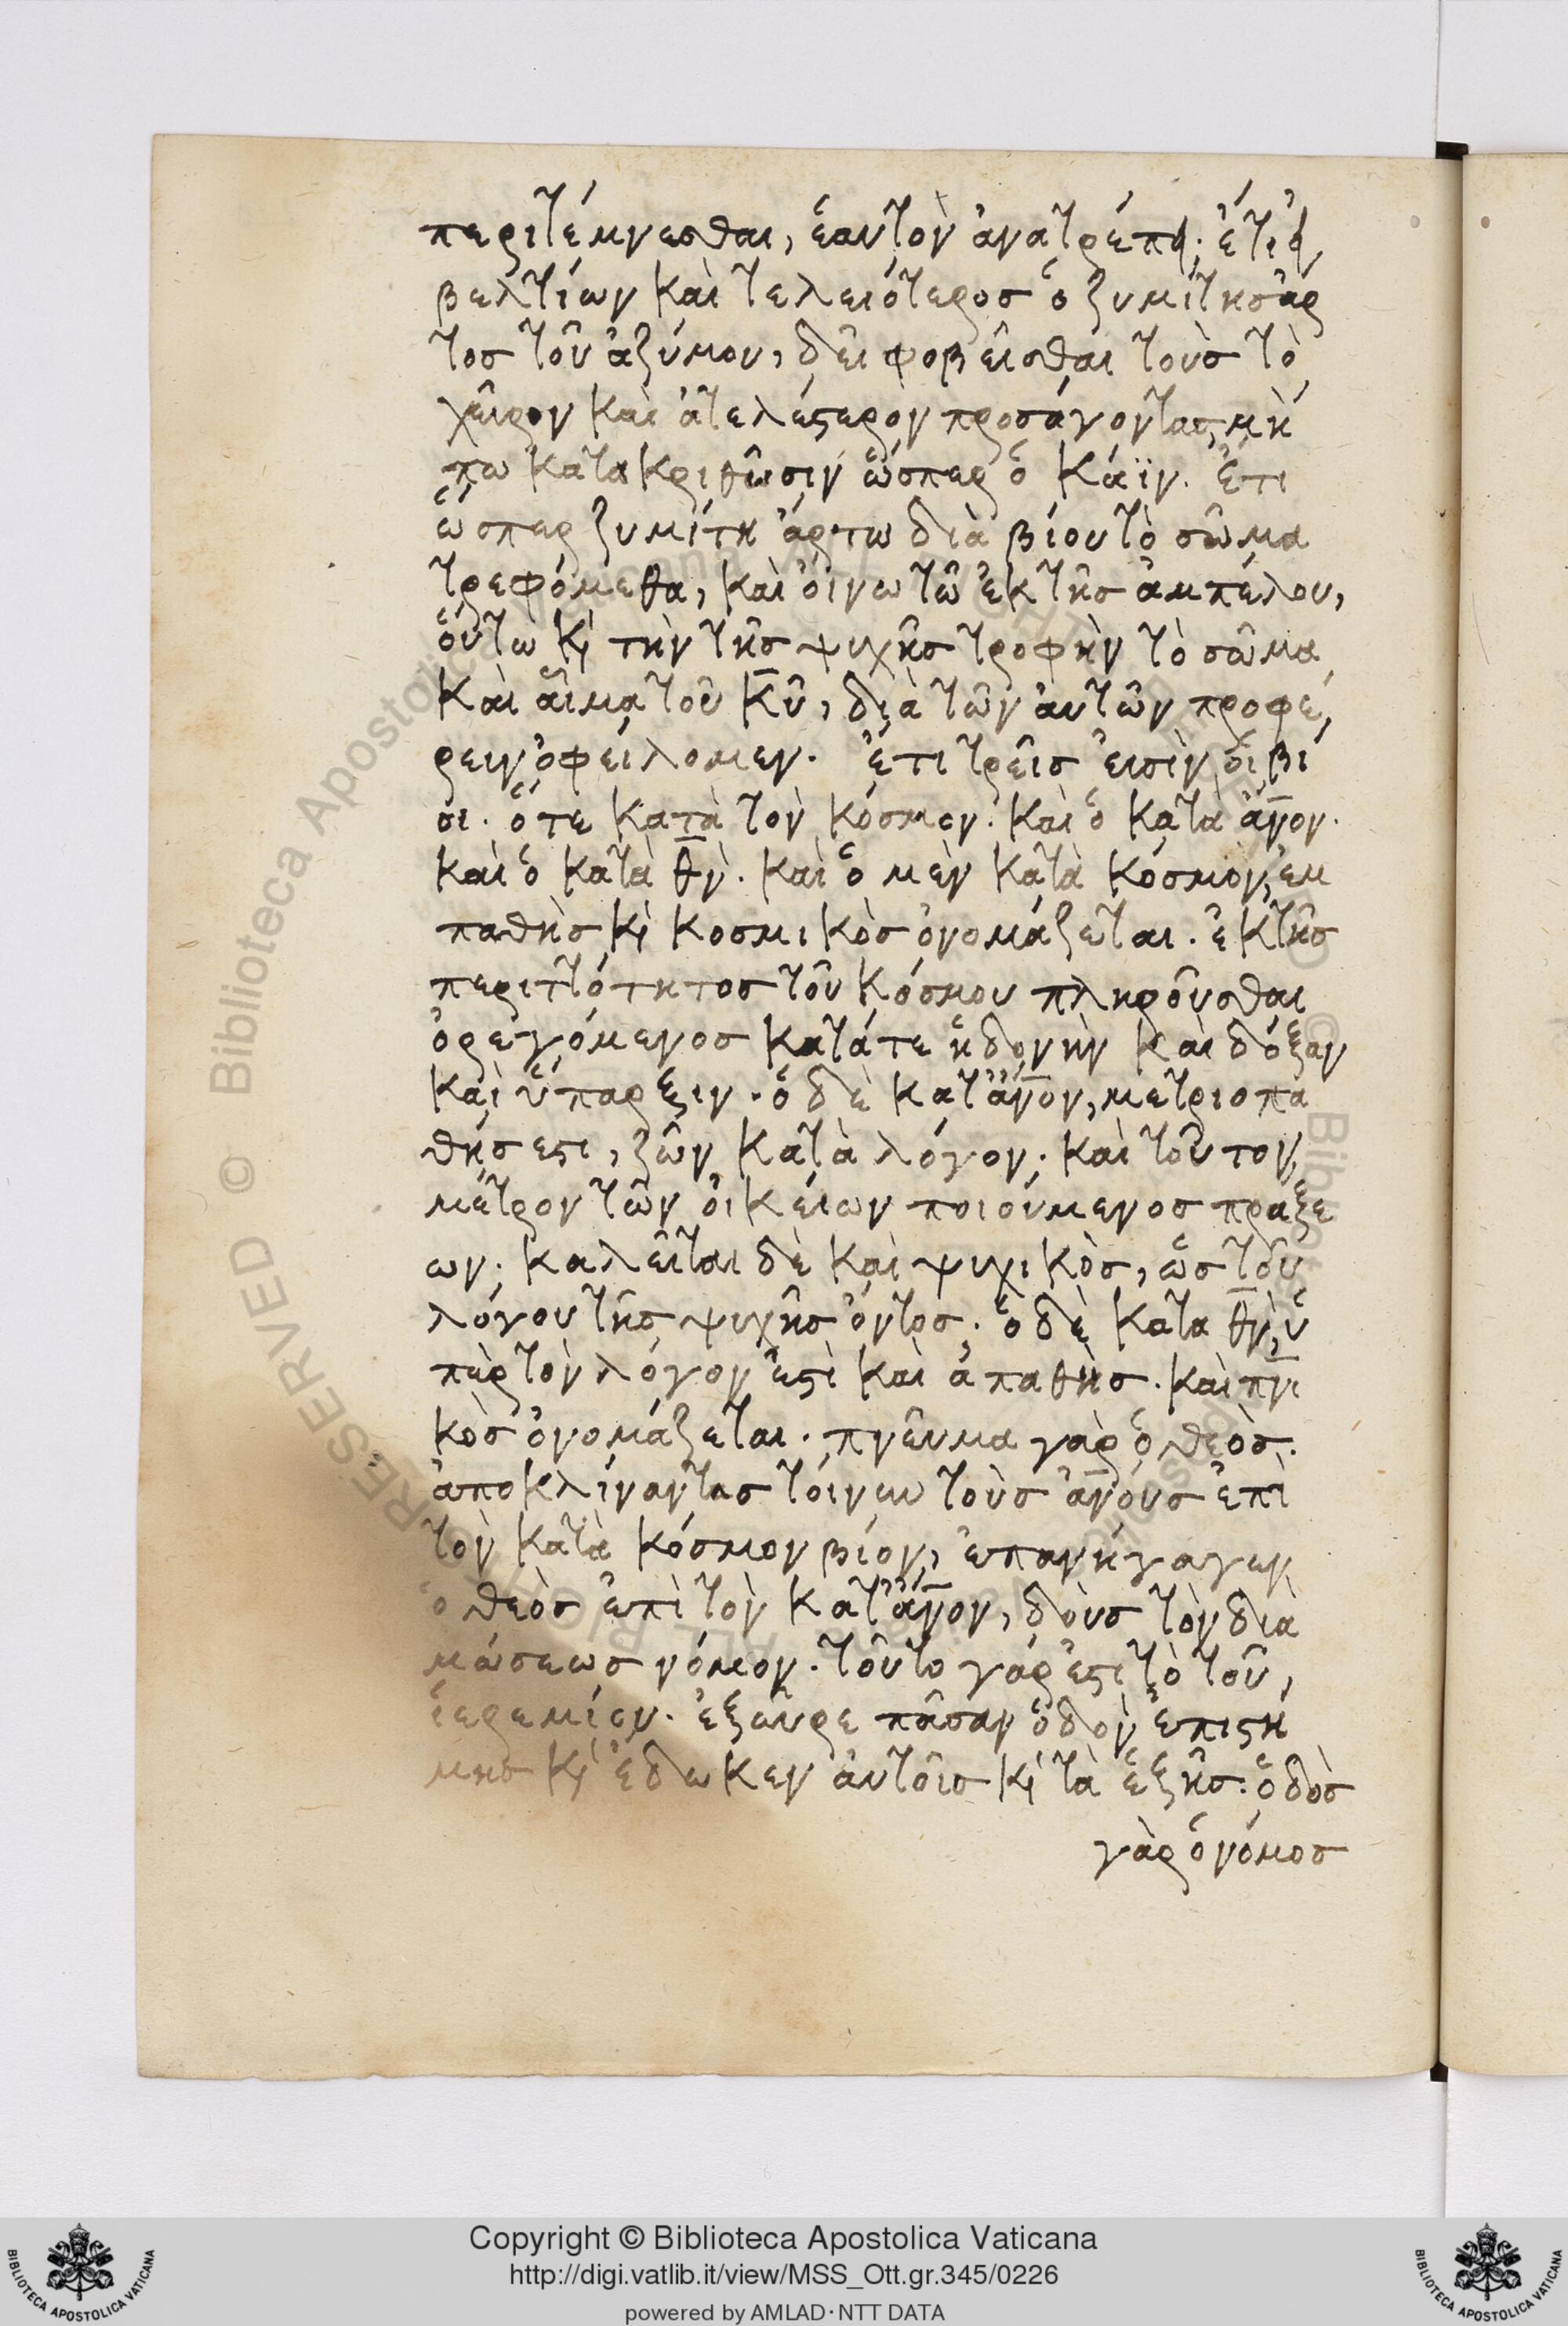 περιτέμνεσθαι, ἑαυτὸν ἀνατρέπει· ἔτι εἰ
βελτίων καὶ τελειότερος ὁ ζυμίτης ἄρ
τος τοῦ ἀζύμου, δεῖ φοβεῖσθαι τοὺς τὸ
χεῖρον καὶ ἀτελέστερον προσάγοντας μή
πω κατακριθῶσιν ὥσπερ ὁ Κάϊν. ἔτι
ὥσπερ ζυμίτη ἄρτω διὰ βίου τὸ σῶμα
τρεφόμεθα, καὶ οἴνω τῶ ἐκ τῆς ἀμπέλου,
οὕτω κὶ τὴν τῆς ψυχῆς τροφὴν τὸ σῶμα
καὶ αἷμα τοῦ κ̅υ̅, διὰ τῶν αὐτῶν προφέ
ρειν ὀφείλομεν. ἔτι τρεῖς εἰσὶν οἱ βί
οι. ὅτε κατὰ τὸν κόσμον. καὶ ὁ κατὰ ἄν̅ον.
καὶ ὁ κατὰ θ̅ν̅. καὶ ὁ μὲν κατὰ κόσμον, ἐμ
παθὴς κὶ κοσμικὸς ὀνομάζεται. ἐκ τῆς
περιττότητος τοῦ κόσμου πληροῦσθαι
ὀρεγόμενος κατά τε ἡδονὴν καὶ δόξαν
καὶ ὕπαρξιν. ὁ δὲ κατ' ἄν̅ον, μετριοπα
θής ἐστι, ζῶν κατὰ λόγον. καὶ τοῦτον
μέτρον τῶν οἰκείων ποιούμενος πράξε
ων. καλεῖται δὲ καὶ ψυχικὸς, ὡς τοῦ
λόγου τῆς ψυχῆς ὄντος. ὁ δὲ κατα θ̅ν̅, ὑ
πὲρ τὸν λόγον ἐστὶ καὶ ἀπαθὴς. καὶ π̅ν̅ι
κὸς ὀνομάζεται. πνεῦμα γὰρ ὁ θεὸς.
ἀποκλίναντας τοίνυν τοὺς ἀν̅ους ἐπὶ
τὸν κατὰ κόσμον βίον, ἐπανήγαγεν
ὁ θεὸς ἐπὶ τὸν κατ' ἄν̅ον, δοὺς τὸν διὰ
μώσεως νόμον. τοῦτο γάρ ἐστι τὸ τοῦ,
ἱερεμίου. ἐξεῦρε πᾶσαν ὁδὸν ἐπιστή
μης κὶ ἔδωκεν αὐτοῖς κὶ τὰ ἑξῆς: ὁδὸς
γὰρ ὁ νόμος
Copyright © Biblioteca Apostolica Vaticana
http://digi.vatlib.it/view/MSS_Ott.gr.345/0226
powered by AMLAD·NTT DATA